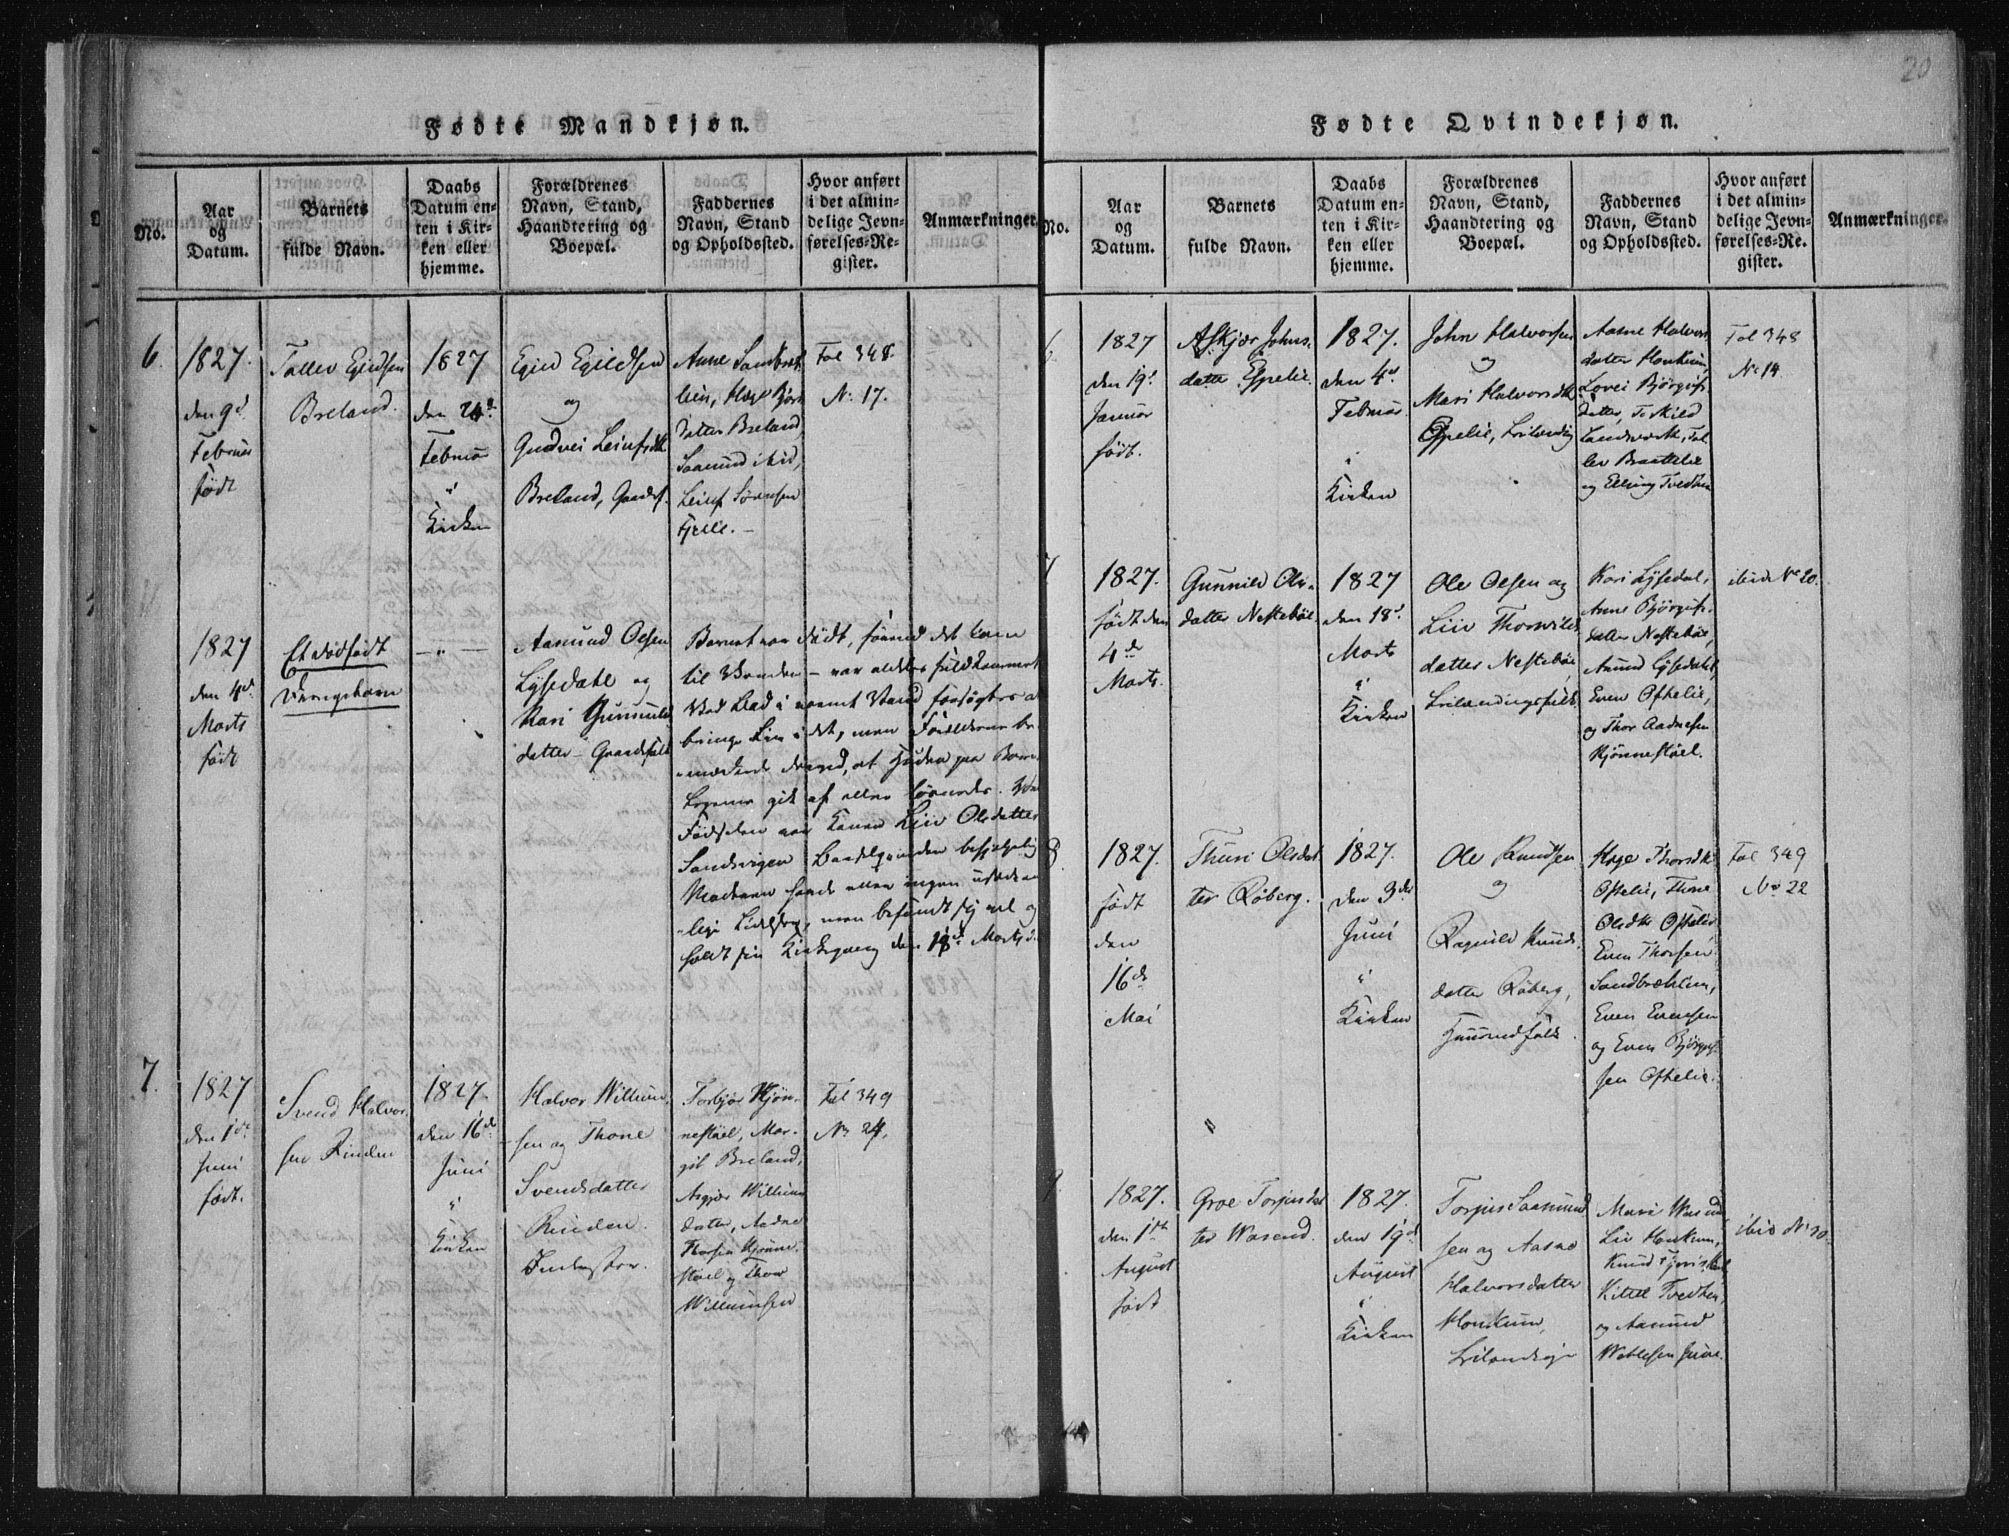 20
Fødte Mandkjøn.
No.
Aar
og
Datum.
Barnets
fulde Navn.
Daabs
Datum en-
ten i Kir-
ken eller
hjemme.
Forældrenes
Navn, Stand,
Haandtering og
Boepæl.
Faddernes
Navn, Stand
og Opholdssted.
Hvor anført
i det almin-
delige Jevn-
førelses-Re-
gister.
Anmærkninger.
6.
1827.
den 9d
Februar
født
Tallev Egildsen
Breland.
1827
den 24d
Februar
"
Kirken
Egild Egildsen
og
Gudvei Leifsdtr
Breland, Gaardf.
Anne
datter Breland,
Saamund ibid,
Leif Sørensen
Fjelle.
Fol 348.
No. 17.
1827
den 4d
Marts
født
Et dødfødt
Drengebarn
— " —
Aasmund Olsen
Lysedahl og
Kari Gunnulds
datter - Gaardfolk
Barnet var dødt, førend det kom
til Verden - var aldeles fuldkomment
Ved Bad i varmt Vand forsøgtes at
bringe Liv i det, men Forældrene be
mærkede derved, at Huden paa
gik af eller løsnedes. Ved
Fødselen var Konen Liv Olsdatter
Sandvigen
Moderen havde ellers ingen
men befandt sig vel og
holdt sin Kirkegang den 18d Marts
7.
1827
den 1de
Juni
født.
Svend Halvor
sen Rinden
1827.
den 16de
Juni
"
Kirken
Halvor Willum
sen og Thone
Svendsdatter
Rinden
Inderster.
Torbjør Kjøn-
nestøel, Mar-
git Breland,
Asgjær Willums
datter, Aadne
Thorsen Kjønne-
støel og Thor
Willumsen
Fol 349
No 24.
Fødte Qvindekjøn.
No.
Aar
og
Datum.
Barnets
fulde Navn.
Daabs
Datum en-
ten i Kir-
ken eller
hjemme.
Forældrenes
Navn, Stand,
Haandtering og
Boepæl.
Faddernes
Navn, Stand
og Opholdssted.
Hvor anført
i det almin-
delige Jevn-
førelses-Re-
gister.
Anmærkninger.
6.
1827
den 19d
Januar
født.
Askjær Johns-
datter Espelie.
1827.
den 4d
Februar
"
Kirken
John Halvorsen
og
Mari Halvorsdtr
Espelie,
Aasne Halvors
datter Haukum,
Lovei Bjørgufs
datter, Torkild
Landsverk, Tal
lev Brattelie
og Elling Tvedten
Fol 348
No 14
7
1827.
født den
4de
Marts.
Gunnild Ols-
datter Nestebøe
1827
den 18d
Marts
"
Kirken
Ole Olsen og
Liv Thorvilds
datter Nestebøe,
Kari Lysedal,
Anne Bjørgufs-
datter Nestebøe,
Amund Lysedahl,
Even Oftelie,
og Thor Aadnesen
Kjønnestøel.
ibid No 20.
8.
1827.
født
den
16de
Mai
Thuri Olsdat
ter Røberg.
1827.
den 3de
Juni
"
Kirken
Ole Knudsen
og
Ragnild Knuds-
datter Røberg,
Huusmdfolk.
Hæge Thorsdtr
Oftelie, Thone
Olsdtr Oftelie
Even Thorsen
Sandbrækken,
Even Evensen
og Even Bjørguf-
sen Oftelie.
Fol 349
No 22
"
9.
1827.
den 1de
August
født
Groe Torjusdat
ter Wasend.
1827.
den 19d
August
"
Kirken
Torjus Saamund
sen og Aasne
Halvorsdatter
Haukum,
Mari Wasend,
Liv Haukum,
Knud
Kittel Tvedten,
og Aasmund
ibid No 30.